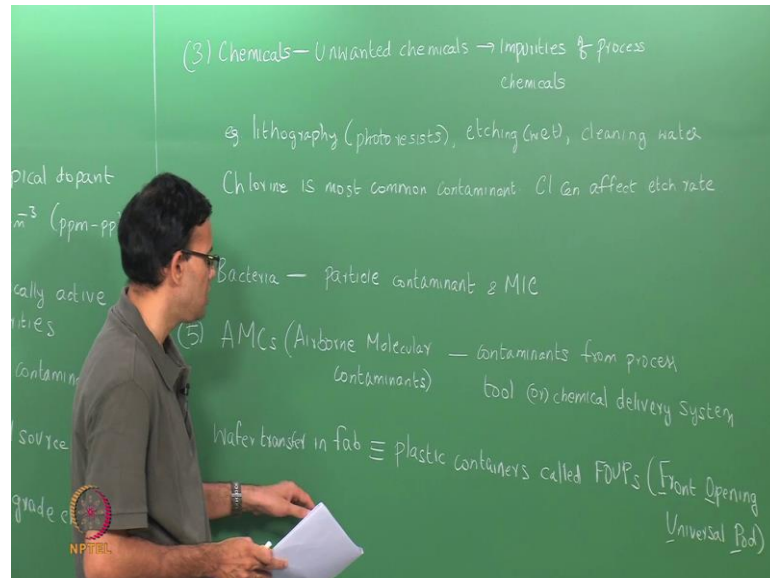 (3) Chemicals — Unwanted chemicals → Impurities of process
chemicals
eg lithography (photoresists), etching (wet), cleaning water
Chlorine is most common contaminant Cl can affect etch rate
Bacteria — particle contaminant & MIC
(5) AMCs (Airborne Molecular — contaminants from process
contaminants) tool (or) chemical delivery system
Wafer transfer in fab ≡ plastic containers called FOUPs (Front Opening
Universal Pod)
pical dopant
m⁻³ (ppm-pp
cally active
ities
contamin
source
grade c
NPTEL